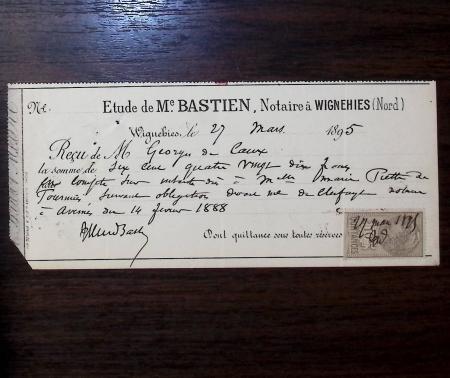 No.
Etude de Me BASTIEN, Notaire à WIGNEHIES (Nord)
Wignehies, le 27 Mars 1895
Reçu de M George de Caux
la somme de Six cent quatre vingt dix francs
compte sur intérêts dus à Melle Marie de
Tournies, suivant obligation devant me notaire
à Avesnes du 14 février 1888
Dont quittance sous toutes réserves
27 mars 1895